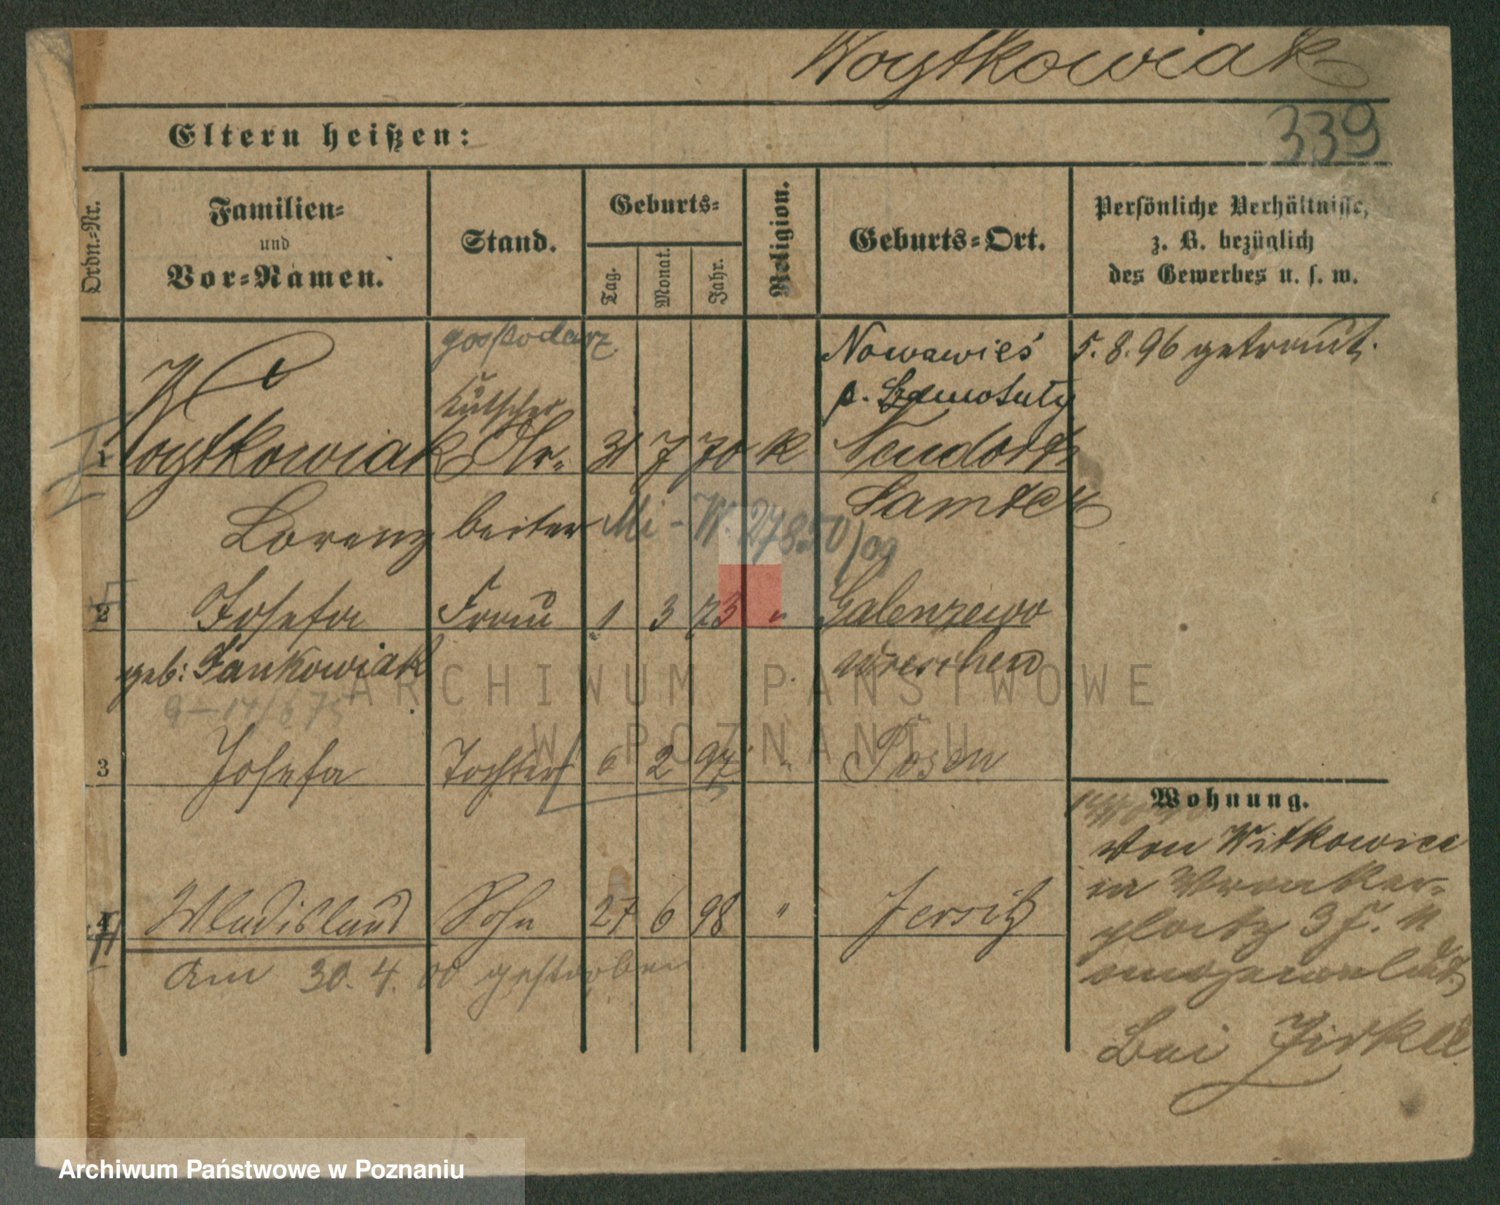 Woytkowiak
339
Eltern heißen:
Ordn.-Nr.
Familien-
und
Vor-Namen.
Stand.
Geburts-
Tag.
Monat.
Jahr.
Religion.
Geburts-Ort.
Persönliche Verhältnisse,
z. B. bezüglich
des Gewerbes u. s. w.
gospodarz
Nowawieś 5. 8. 96 getraut.
Kutscher
p. Szamotuły
1 Woytkowiak Ar- 31 7 70 k Neudorf
Samter
Lorenz beiter Mi - W. 27850/09
2 Josefa Frau 1 3 73 " Galenzewo
geb: Jankowiak Wreschen
9-14/6 75
3 Josefa Tochter 6 2 97 " Posen
Wohnung.
Von Witkowice
in Wronker-
platz 3 F. 11
4 Wladislaus Sohn 27 6 98 " Jersitz
am 30. 4. 00 gestorben
Bei
ARCHIWUM PAŃSTWOWE
W POZNANIU
Archiwum Państwowe w Poznaniu